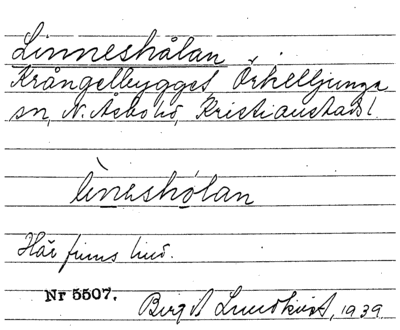 Linneshålan
Krångelbygget, Örkelljunga
sn, N. Åsbo hd, Kristianstads l.
lìneshólan
Här finns lind.
Nr 5507.
Birgit Lundkvist, 1939